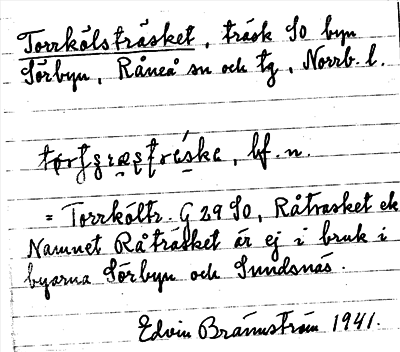 Torrkölsträsket, träsk SO byn
Sörbyn, Råneå sn och tg, Norrb. l.
bf. n.
= Torrköltr. G 29 SO, Råtrasket ek
Namnet Råträsket är ej i bruk i
byarna Sörbyn och Sundsnäs.
Edvin Brännström 1941.